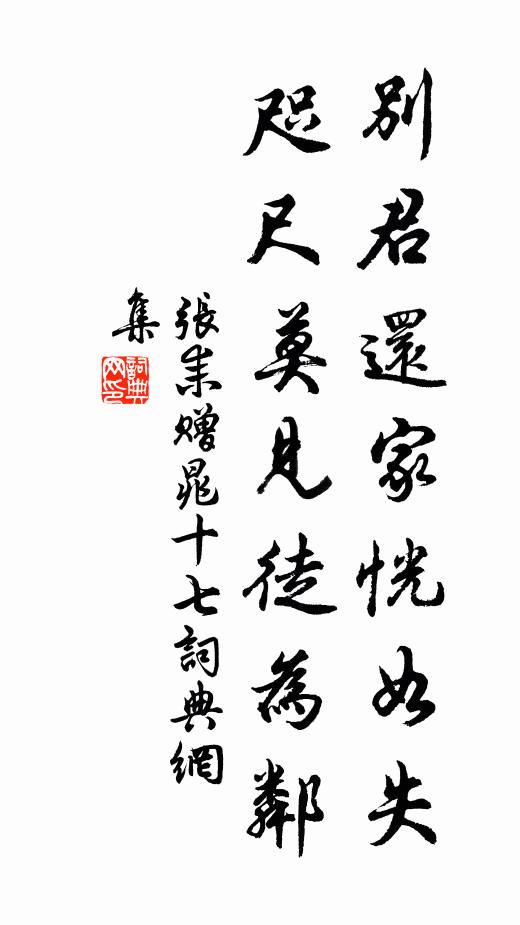 別君還家恍如失
咫尺莫見徒為鄰
張耒贈晁十七詞典網
集
詞典
网印